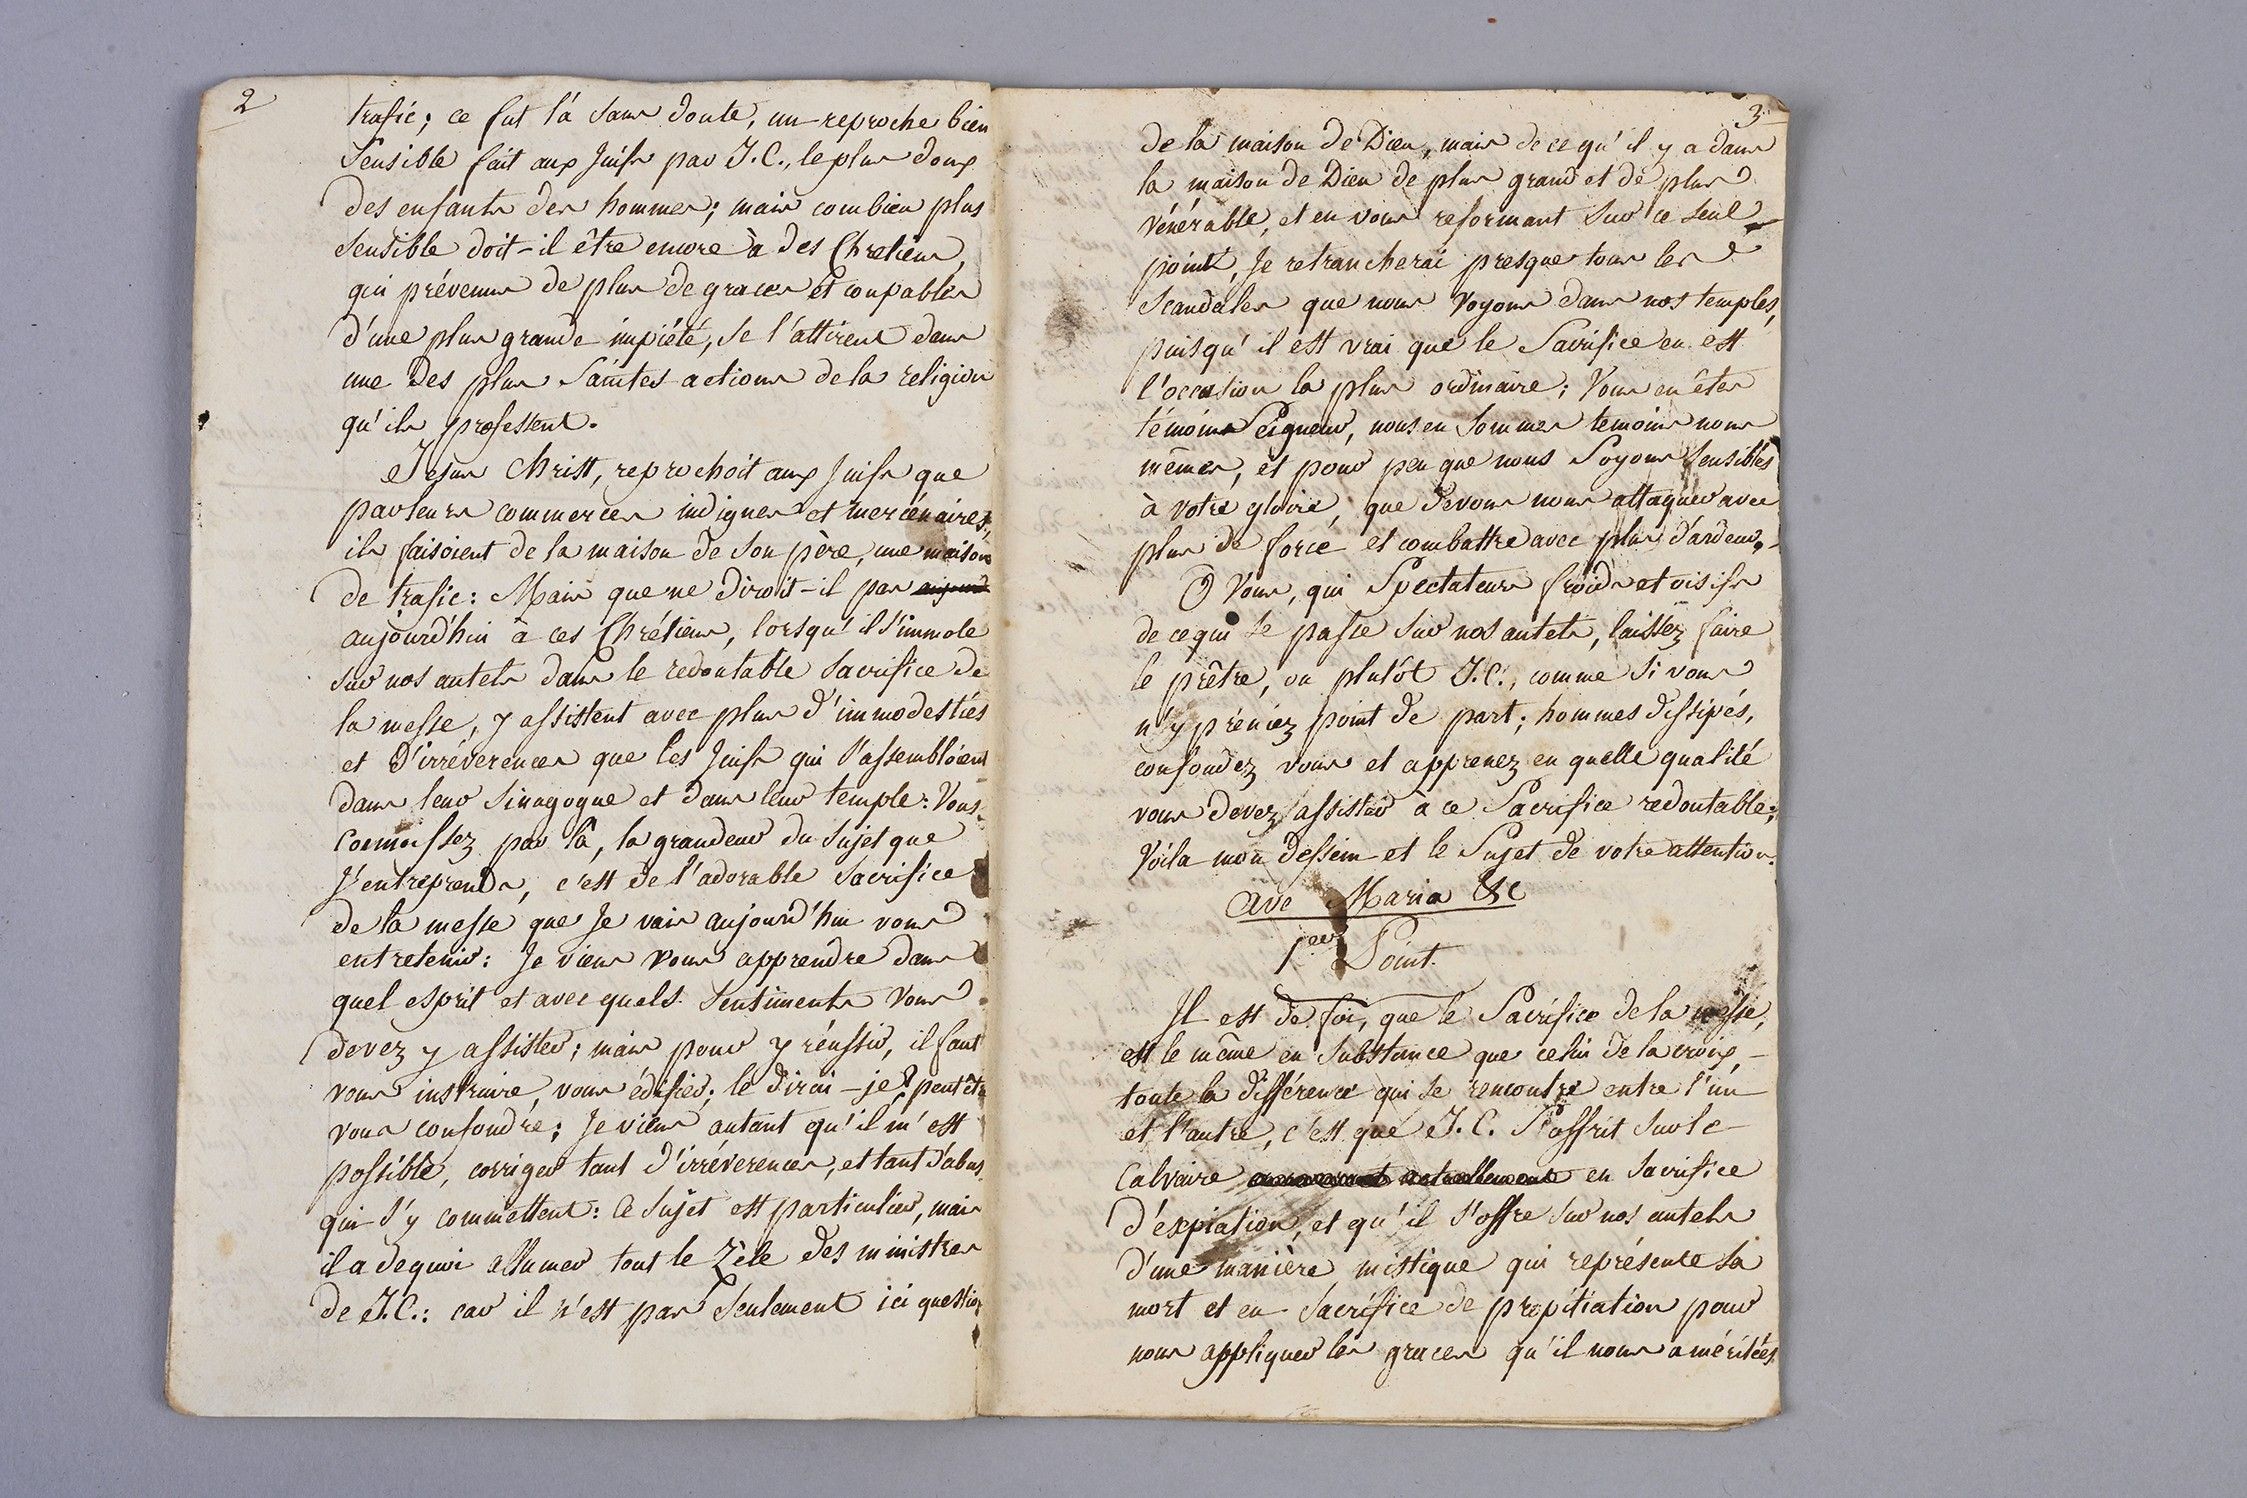 2
trafic; ce fut là sans doute, un reproche bien
Sensible fait aux Juifs par J.C., le plus doux
des enfants des hommes; mais combien plus
sensible doit-il être encore à des Chretiens,
qui prévenus de plus de graces et coupables
d'une plus grande impiété, se l'attirent dans
une des plus Saintes actions de la religion
qu'ils professent.
Jesus Christ, reprochoit aux Juifs que
par leurs commerces indignes et mercénaires,
ils faisoient de la maison de son père, une maison
de trafic: Mais que ne diroit-il pas aujourd
aujourd'hui à ces Chrétiens, lorsqu'il s'immole
sur nos autels dans le redoutable sacrifice de
la messe, y assistent avec plus d'immodesties
et d'irréverences que les Juifs qui s'assembloient
dans leur Sinagogue et dans leur temple: Vous
Connoissez par là, la grandeur du sujet que
J'entreprends, c'est de l'adorable Sacrifice
de la messe que Je vais aujourd'hui vous
entretenir: Je viens vous apprendre dans
quel esprit et avec quels Sentiments Vous
devez y assister; mais pour y réussir, il faut
vous instruire, vous édifier; le dirai-je? peut être
vous confondre; Je viens autant qu'il m'est
possible, corriger tant d'irréverences, et tant d'abus
qui s'y commettent: Ce sujet est particulier, mais
il a dequoi allumer tout le Zèle des ministres
de J.C.: car il n'est pas Seulement ici question
3.
de la maison de Dieu, mais de ce qu'il y a dans
la maison de Dieu de plus grand et de plus
vénérable, et en vous reformant sur ce seul
point, Je retrancherai presque tous les
Scandales que nous Voyons dans nos temples,
puisqu'il est vrai que le Sacrifice en est
l'occasion la plus ordinaire; Vous en êtes
témoins Seigneur, nous en Sommes temoins nous
mêmes, et pour peu que nous Soyons Sensibles
à votre gloire, que devons nous attaquer avec
plus de force et combattre avec plus d'ardeur.
O Vous, qui Spectateurs froids et oisifs
de ce qui se passe sur nos autels, laissez faire
le prêtre, ou plutôt J.C., comme Si vous
n'y preniez point de part; hommes dissipés,
confondez vous et apprenez en quelle qualité
vous devez assister à ce Sacrifice redoutable;
Voila mon dessein et le Sujet de votre attention.
Ave Maria &c
1er Point.
Il est de foi, que le Sacrifice de la messe,
est le même en Substance que celui de la croix,
toute la différence qui se rencontre entre l'un
et l'autre, c'est que J.C. S'offrit Sur le
Calvaire en Sacrifice
d'expiation, et qu'il s'offre sur nos autels
d'une manière mistique qui représente sa
mort et en Sacrifice de propitiation pour
nous appliquer les graces qu'il nous a méritées